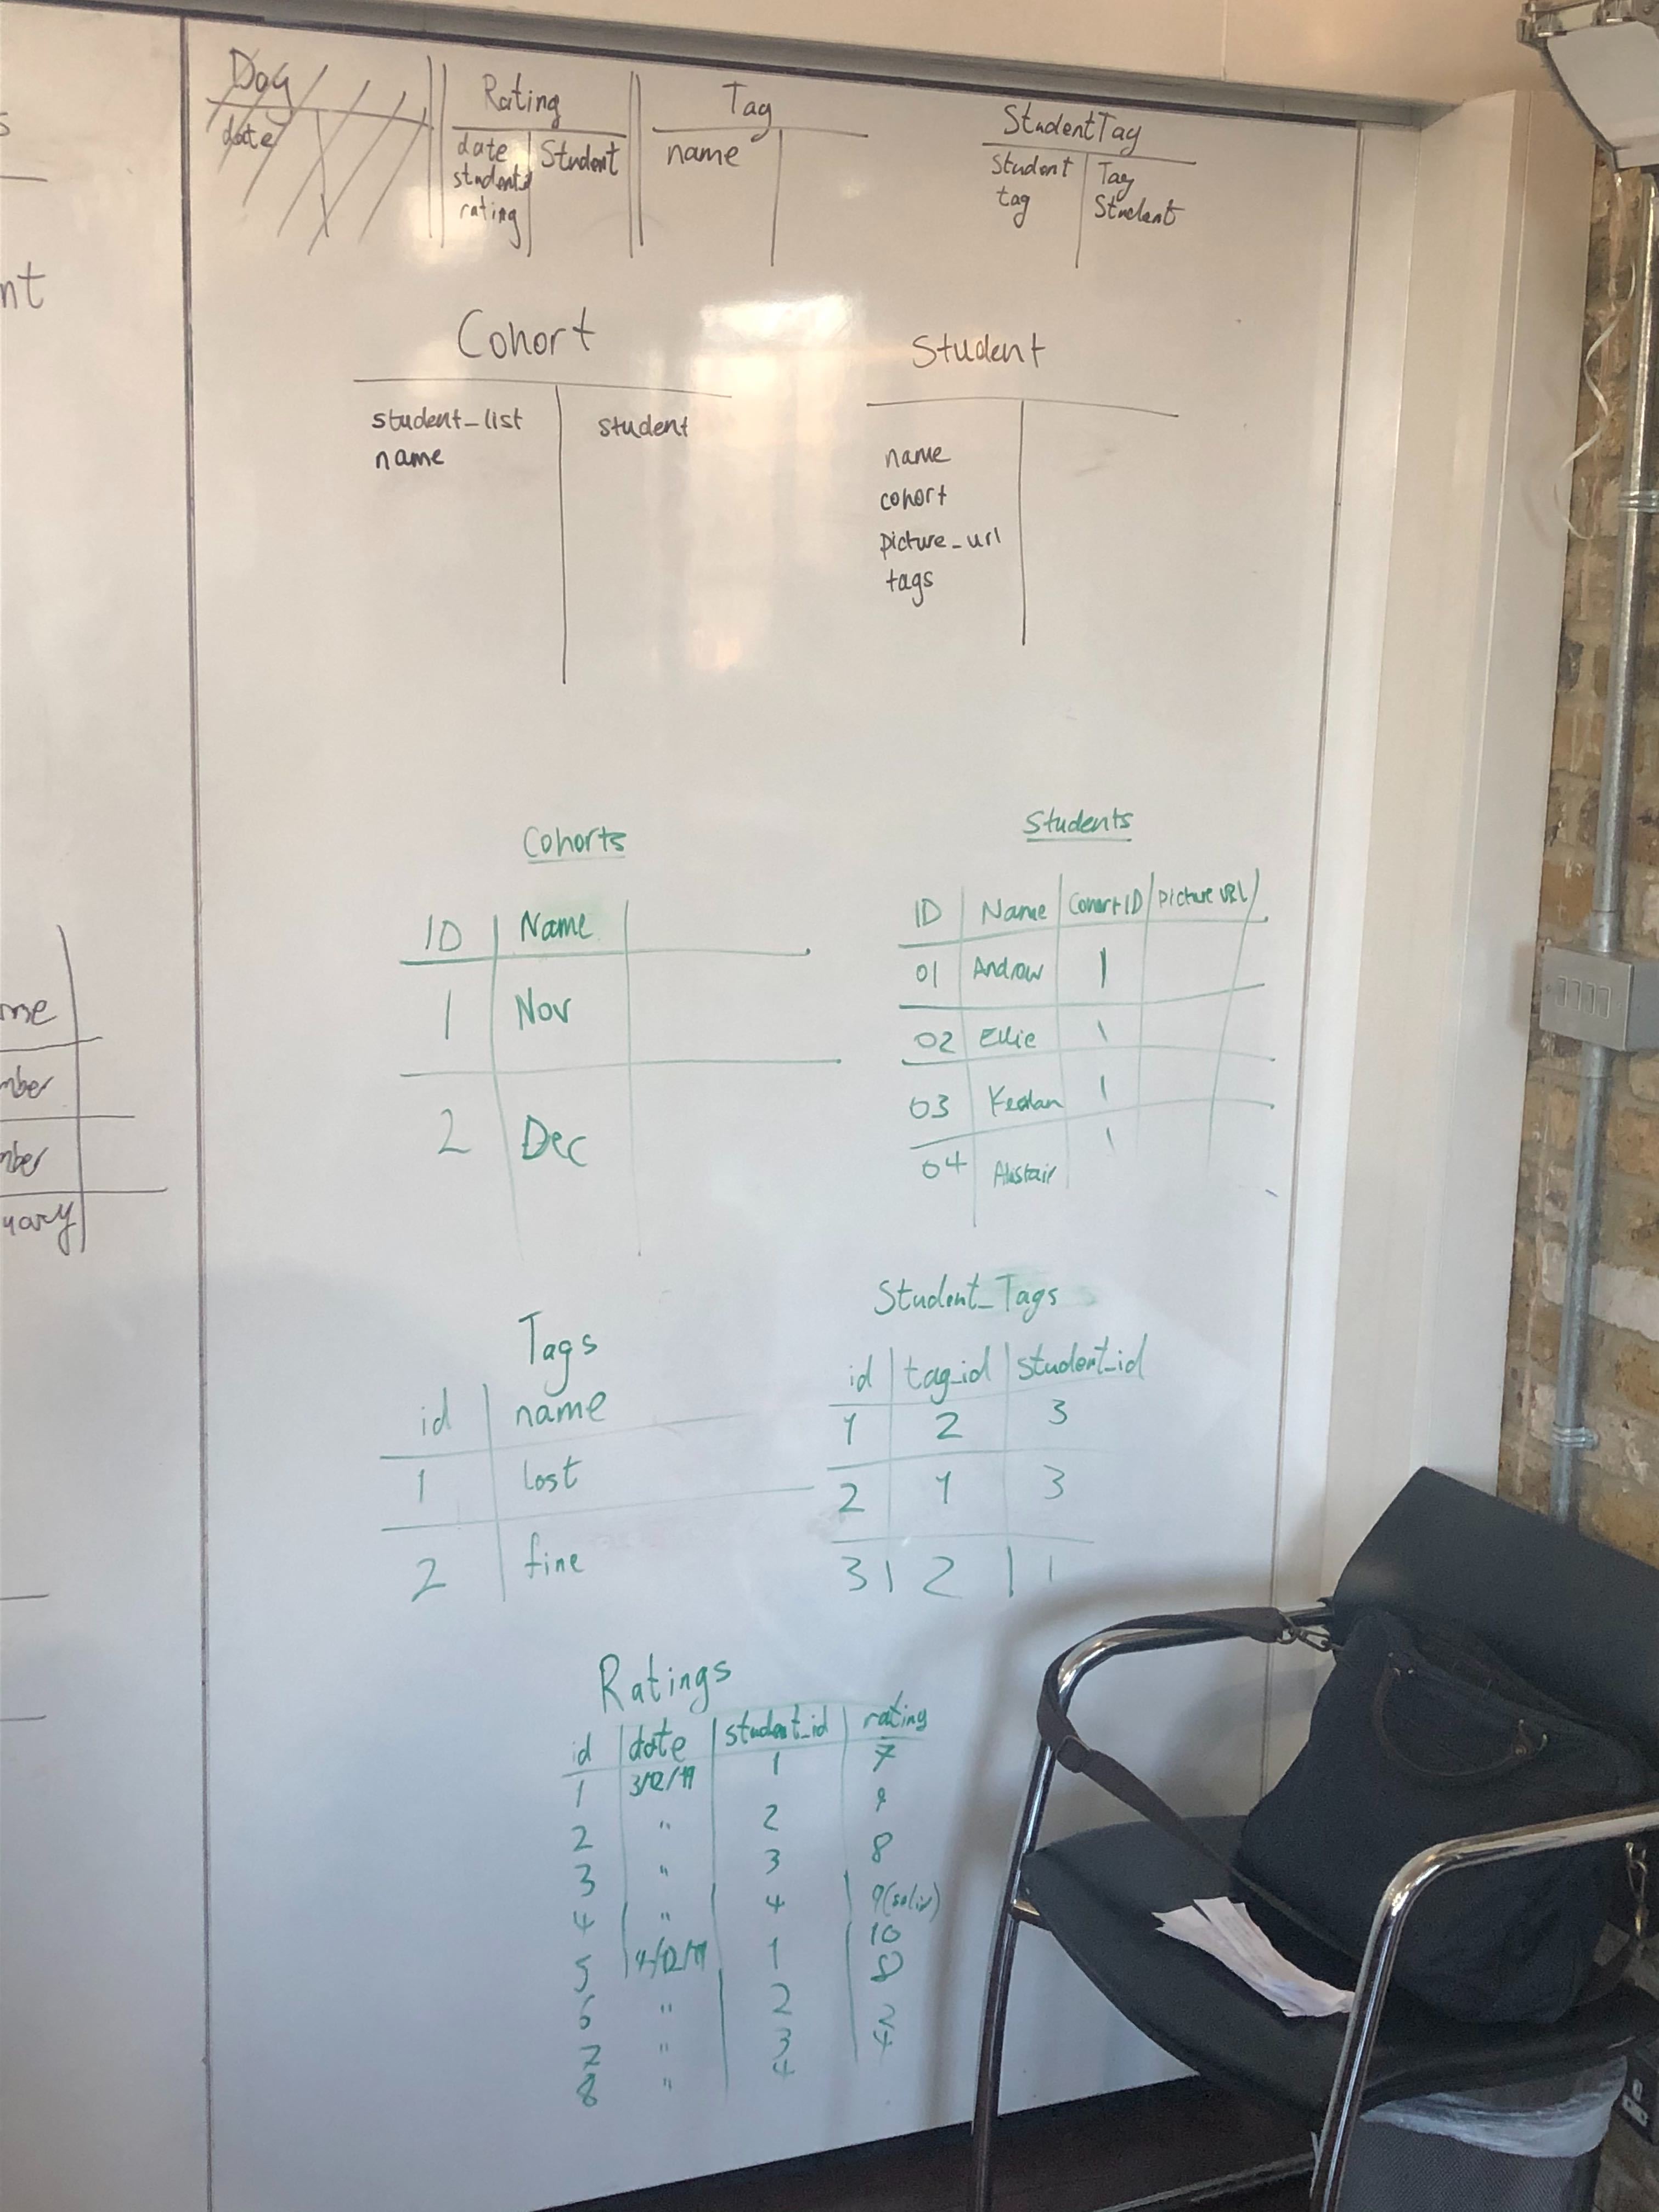 s
nt
me
mber
mber
uary
Day
date
Rating
date Student
student
rating
Tag
name
StudentTag
Student Tag
tag Student
Cohort
student_list student
name
Student
name
cohort
picture_url
tags
Cohorts
ID Name
1 Nov
2 Dec
Students
ID Name Cohort ID Picture URL
01 Andrew 1
02 Ellie 1
03 Kealan 1
04 Alistair 1
Tags
id name
1 lost
2 fine
Student_Tags
id tag_id student_id
1 2 3
2 1 3
3 2 1
Ratings
id date student_id rating
1 3/12/19 1 7
2 " 2 9
3 " 3 8
4 " 4 9
5 4/12/19 1 10
6 " 2 8
7 " 3 2
8 " 4 4